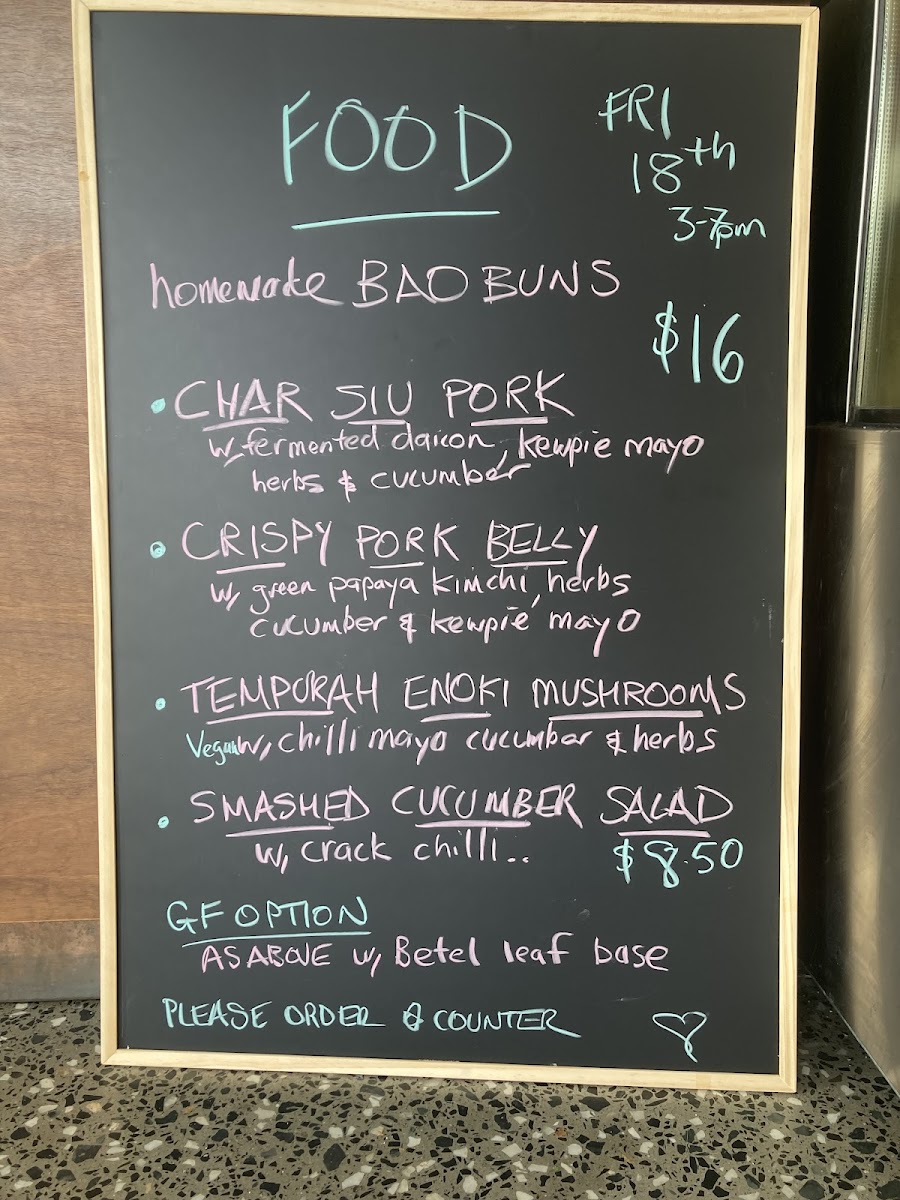 FOOD
FRI
18th
3-7pm
homemade BAO BUNS
$16
• CHAR SIU PORK
w, fermented daicon, kewpie mayo
herbs & cucumber
• CRISPY PORK BELLY
w, green papaya kimchi, herbs
cucumber & kewpie mayo
• TEMPURAH ENOKI MUSHROOMS
Vegan w, chilli mayo cucumber & herbs
• SMASHED CUCUMBER SALAD
w, crack chilli.. $8.50
GF OPTION
AS ABOVE w, Betel leaf base
PLEASE ORDER @ COUNTER